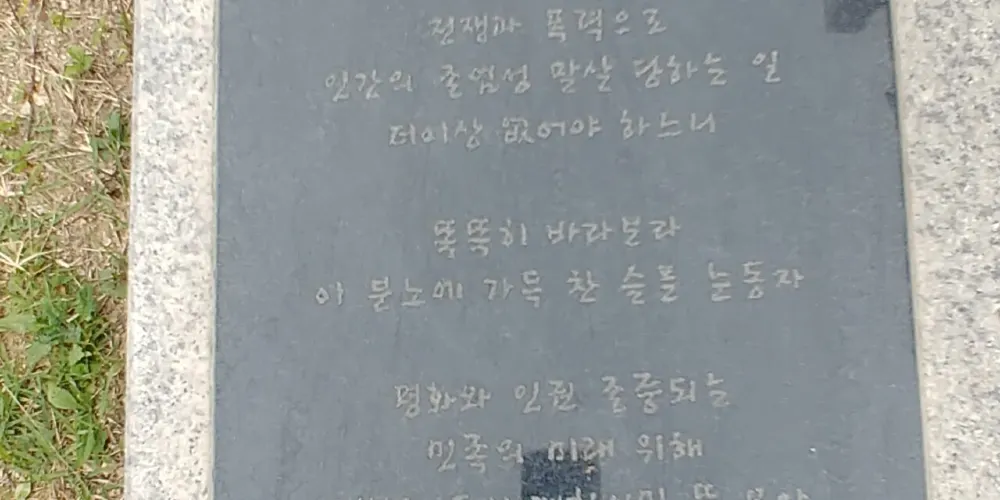 전쟁과 폭력으로
인간의 존엄성 말살 당하는 일
더이상 없어야 하느니
똑똑히 바라보라
이 분노에 가득 찬 슬픔 눈동자
평화와 인권 존중되는
민족의 미래 위해